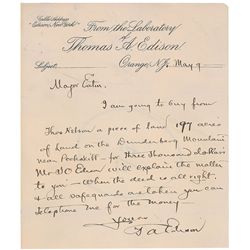 Cable Address
"Edison, New York"
From the Laboratory
of
Thomas A. Edison,
Subject
Orange, N.J. May 9
Major Eaton.
I am going to buy from
Thos Nelson a piece of land 197 acres
of land on the Dunderberg Mountain
near Peekskill - for three thousand dollars
Mr J C Edison will explain the matter
to you - when the deed is all right
& all safeguards are taken you can
telephone me for the money -
yours
T A Edison